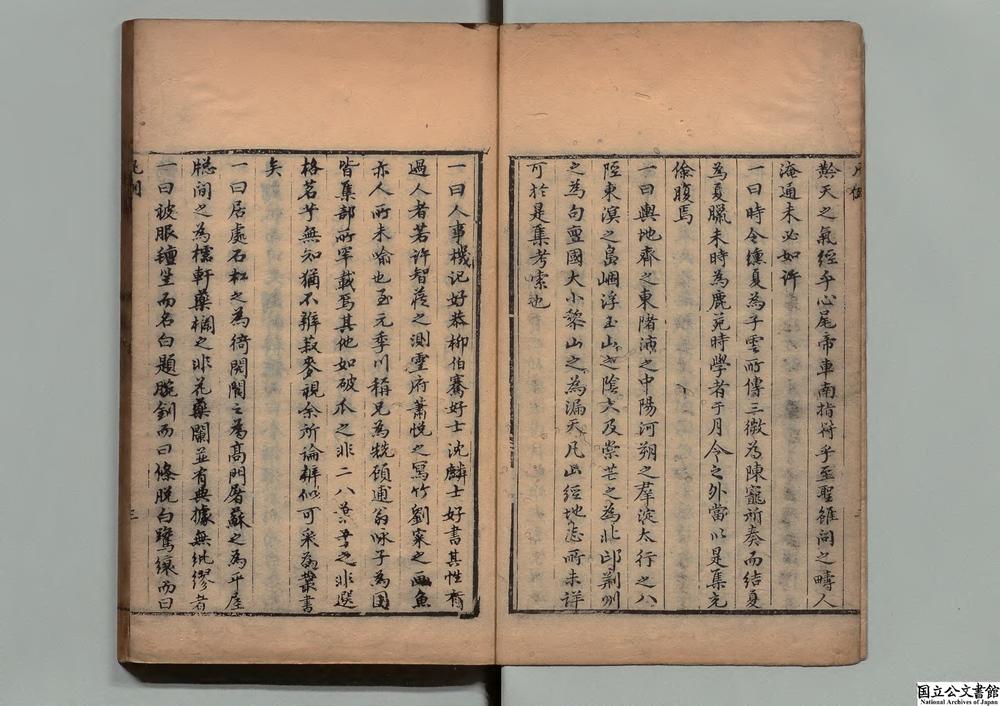 齡天之氣經乎心尾帝車南指符乎至聖雖問之疇人
淹通未必如許
一曰時令纁夏為子雲所傳三微為陳寵所奏而結夏
為夏臘未時為鹿苑時學者于月令之外當以是集充
儉腹焉
一曰輿地齊之東陼沛之中陽河朔之羣淀太行之八
陘東溟之島崓浮玉山之陰大及崇芒之為北邙荊州
之為句亶國大小黎山之為漏天凡此經地志所未詳
可於是集考索也
一曰人事機記好恭柳伯騫好士沈麟士好書其性有
過人者若許智蔵之測靈府蕭悅之寫竹劉寀之畫魚
亦人所未喻也至元季川稱兄為
逋翁咏子為囝
皆集部所罕載焉其他如破瓜之非二八
之非選
格茗芋無知猶不辨菽麥視余所論辨似可采為叢書
矣
一曰居處石松之為徛閥閱之為高門屠蘇之為平屋
牕間之為櫺軒藥欄之非花藥闌並有典據無紕繆者
一曰被服氈
而名白題腕釧而曰條脱白鷺縗而曰
三
国立公文書館
National Archives of Japan